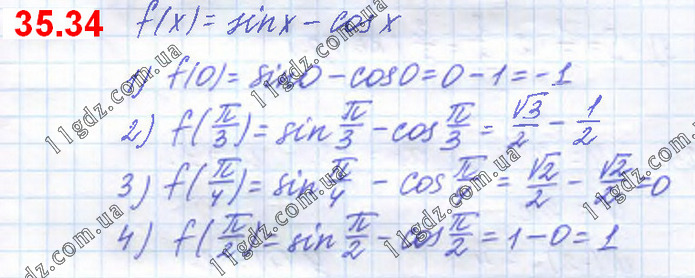 35.34 f(x) = sin x - cos x
1) f(0) = sin 0 - cos 0 = 0 - 1 = -1
2) f(π/3) = sin π/3 - cos π/3 = √3/2 - 1/2
3) f(π/4) = sin π/4 - cos π/4 = √2/2 - √2/2 = 0
4) f(π/2) = sin π/2 - cos π/2 = 1 - 0 = 1
11gdz.com.ua
11gdz.com.ua
11gdz.com.ua
11gdz.com.ua
11gdz.com.ua
11gdz.com.ua